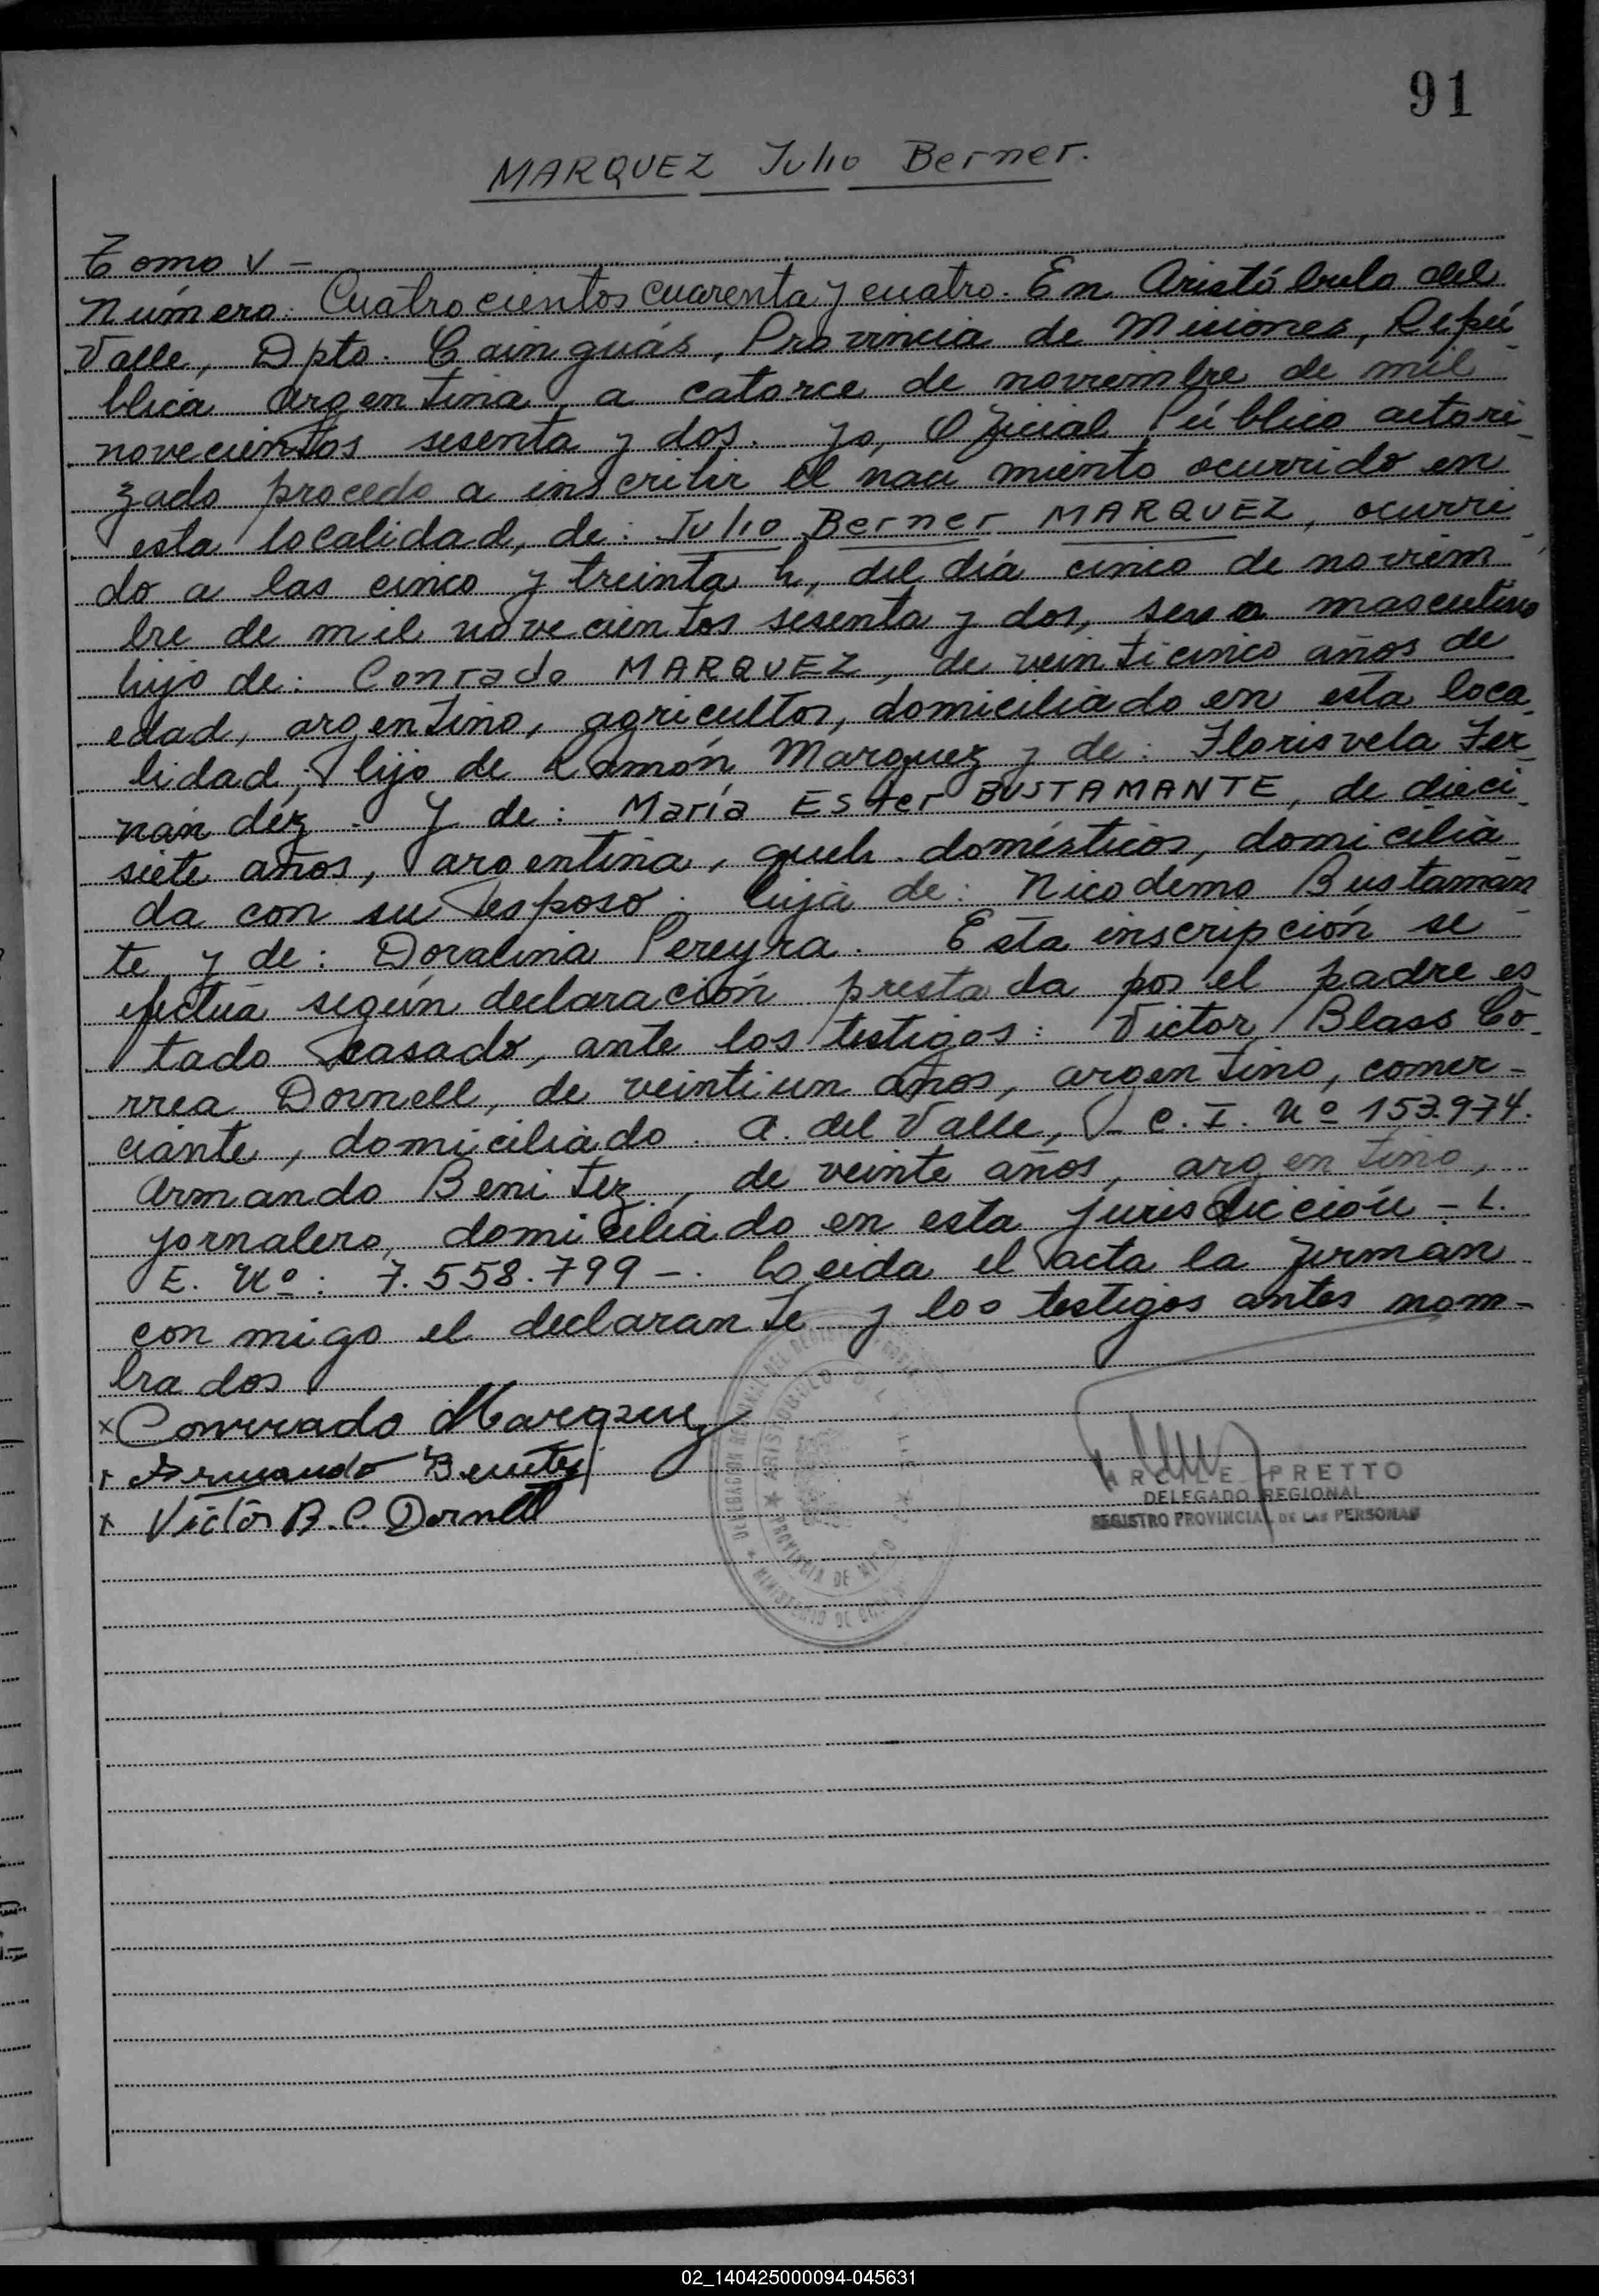 91
MARQUEZ Julio Berner.
Tomo V -
Número: Cuatrocientos cuarenta y cuatro. En Aristóbulo del
Valle, Dpto. Cainguás, Provincia de Misiones, Repú-
blica Argentina, a catorce de noviembre de mil
novecientos sesenta y dos. Yo, Oficial Público autori-
zado procedo a inscribir el nacimiento ocurrido en
esta localidad, de: Julio Berner MARQUEZ, ocurri-
do a las cinco y treinta h, del día cinco de noviem-
bre de mil novecientos sesenta y dos, sexo masculino
hijo de: Conrado MARQUEZ, de veinticinco años de
edad, argentino, agricultor, domiciliado en esta loca-
lidad, hijo de Ramón Marquez y de: Florisvela Fer-
nández. Y de: María Ester BUSTAMANTE, de dieci-
siete años, argentina, queh. domésticos, domicilia-
da con su esposo. hija de: Nicodemo Bustaman-
te y de: Doralina Pereyra. Esta inscripción se
efectúa según declaración prestada por el padre es-
tado casado, ante los testigos: Victor Blass Co-
rrea Dornell, de veintiun años, argentino, comer-
ciante, domiciliado. A. del Valle, C. I. Nº 153.974.
Armando Benitez, de veinte años, argentino,
jornalero, domiciliado en esta jurisdicción - L.
E. Nº: 7.558.799 -. Leida el acta la firman
conmigo el declarante y los testigos antes nom-
brados
x Conrrado Marquez
x Armando Benitez
x Victor B. C. Dornell
ARCILE PRETTO
DELEGADO REGIONAL
REGISTRO PROVINCIAL DE LAS PERSONAS
ARISTOBULO DEL VALLE
PROVINCIA DE MISIONES
02_140425000094-045631